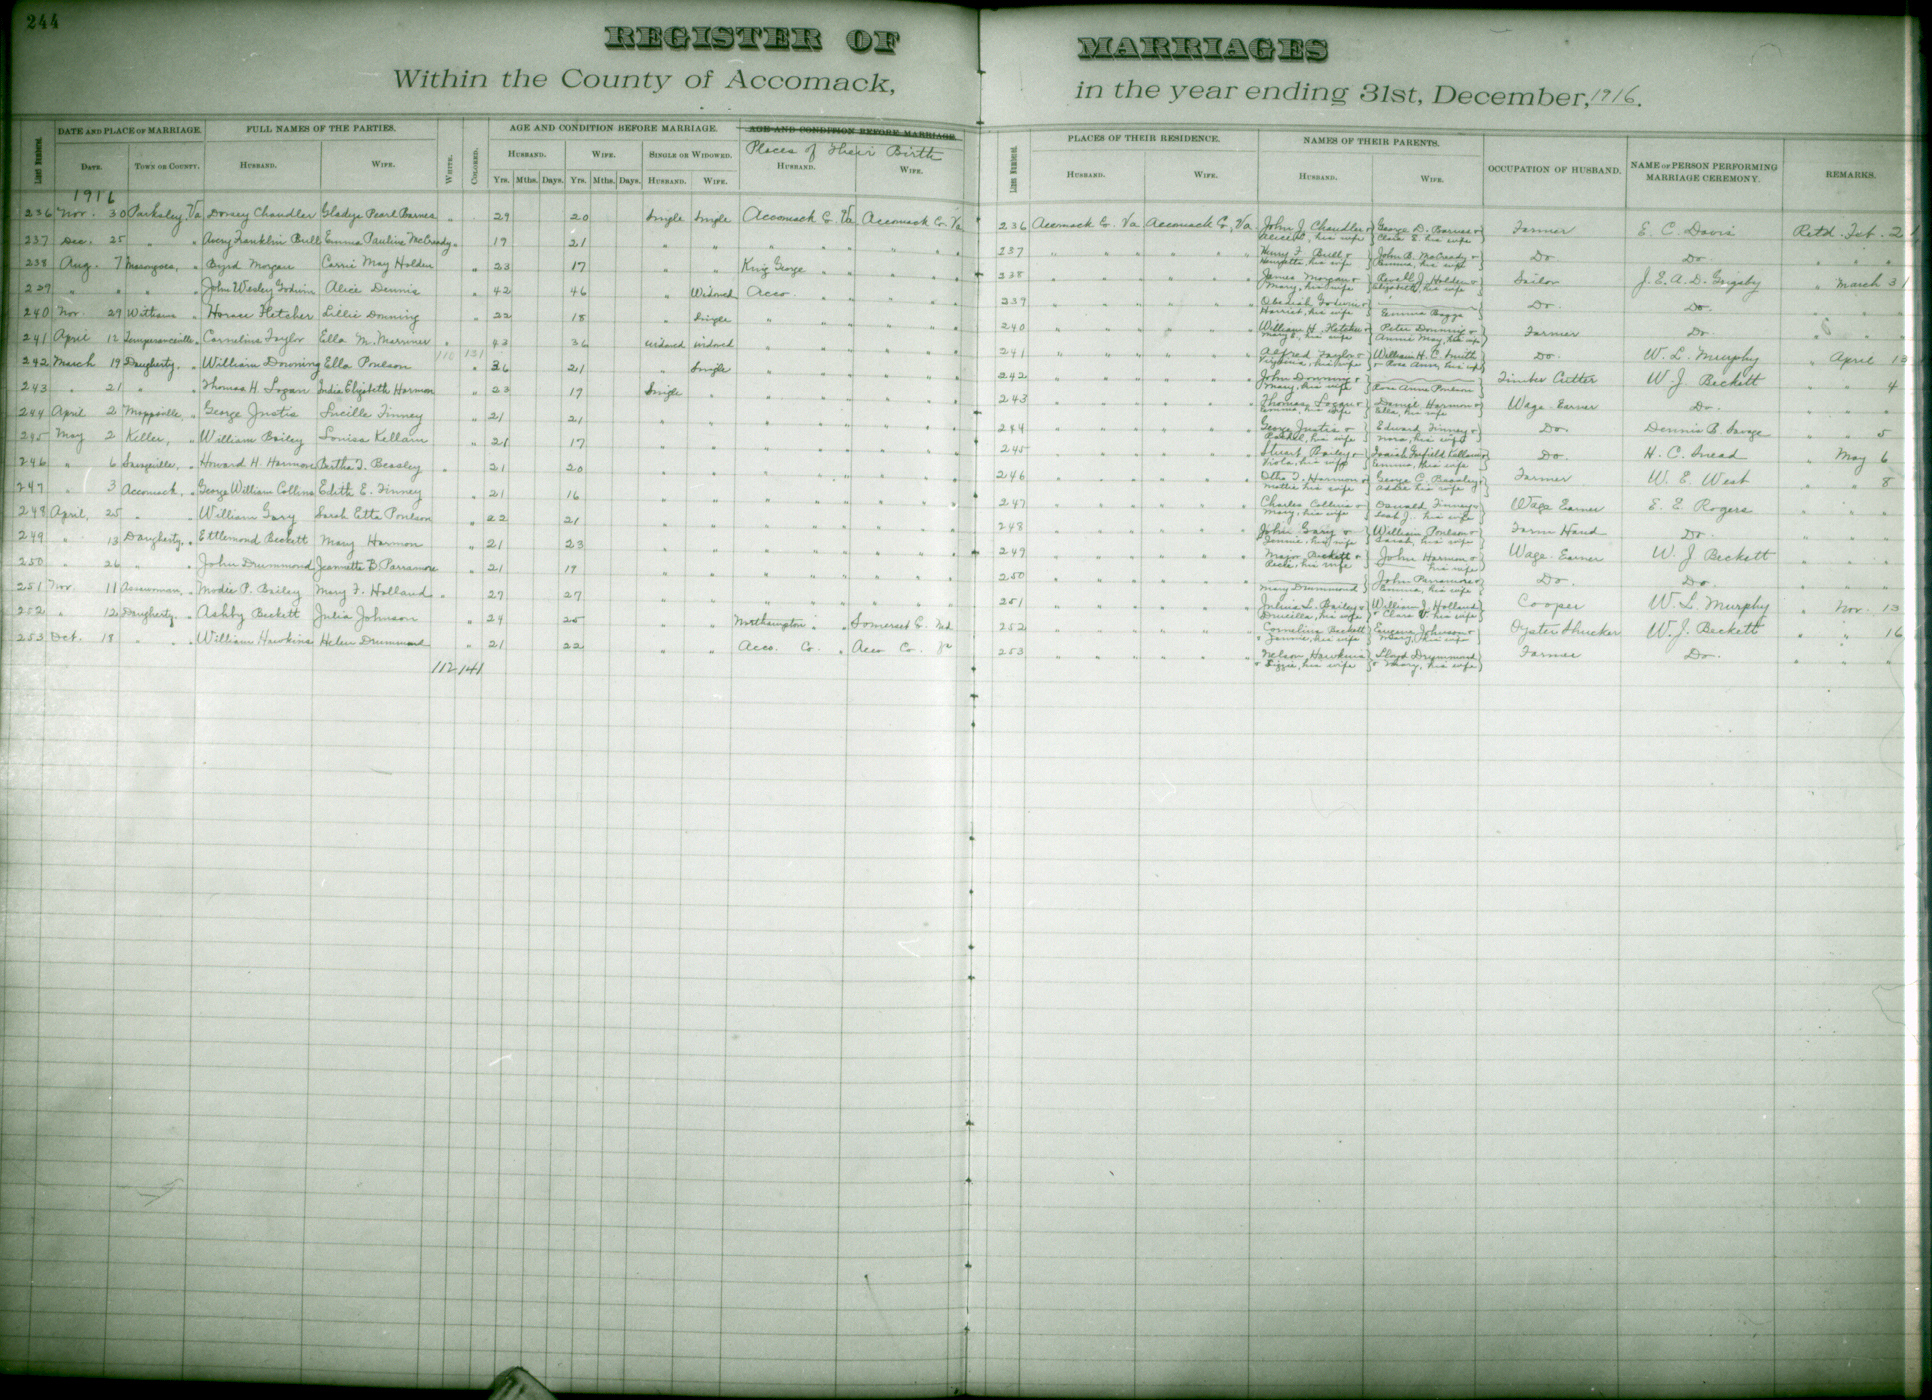 244
REGISTER OF MARRIAGES
Within the County of Accomack, in the year ending 31st, December, 1916.
Line Numbered. DATE AND PLACE OF MARRIAGE. FULL NAMES OF THE PARTIES. WHITE. COLORED. AGE AND CONDITION BEFORE MARRIAGE. AGE AND CONDITION BEFORE MARRIAGE Line Numbered. PLACES OF THEIR RESIDENCE. NAMES OF THEIR PARENTS. OCCUPATION OF HUSBAND. NAME OF PERSON PERFORMING MARRIAGE CEREMONY. REMARKS.
Places of Their Birth
DATE. TOWN OR COUNTY. HUSBAND. WIFE. HUSBAND. WIFE. SINGLE OR WIDOWED. HUSBAND. WIFE. HUSBAND. WIFE. HUSBAND. WIFE.
Yrs. Mths. Days. Yrs. Mths. Days. HUSBAND. WIFE.
1916
236 Nov. 30 Parksley, Va Dorsey Chandler Gladys Pearl Barnes " 29 20 Single Single Accomack Co. Va Accomack Co. Va 236 Accomack Co. Va Accomack Co, Va John J. Chandler & his wife George D. Barnes & Clara E. his wife Farmer E. C. Davis Retd. Feb. 2
237 Dec. 25 " " Avery Franklin Bull Emma Pauline McCready " 19 21 " " " " " " 237 " " " " Henry F. Bull & Henrietta, his wife John B. McCready & Emma, his wife Do Do " " "
238 Aug. 7 " Byrd Morgan Carrie May Holden " 23 17 " " King George " " " 238 " " " " James Morgan & Mary, his wife Revell J. Holden & Elizabeth, his wife Sailor J. E. A. D. Grigsby " March 31
239 " " " " John Wesley Godwin Alice Dennis " 42 46 " Widowed Acco. " " " 239 " " " " Obadiah Godwin & Harriet, his wife Emma Boggs Do. Do. " " "
240 Nov. 29 Horace Fletcher Lillie Downing " 22 18 " Single " " " " 240 " " " " William H. Fletcher & his wife Peter Downing & Annie May, his wife Farmer Do
241 April 12 Temperanceville, " Cornelius Taylor Ella M. Marriner " 43 36 widowed widowed " " " " 241 " " " " Alfred Taylor & Virginia, his wife William H. C. Smith & Rose Ann, his wife Do. W. L. Murphy " April 13
110 131
242 March 19 Daugherty. " William Downing Ella Poulson " 36 21 " Single " " " " 242 " " " " John Downing & Mary, his wife Rose Anna Poulson Timber Cutter W. J. Beckett " " 4
243 " 21 " " Thomas H. Logan India Elizabeth Harmon " 23 19 Single " " " " " 243 " " " " Thomas Logan & Emma, his wife Harmon & Ella, his wife Wage Earner Do. " " "
244 April 2 Mappsville, " George Justis Lucille Finney " 21 21 " " " " " " 244 " " " " George Justis & Rachel, his wife Edward Finney & Nora, his wife Do. Dennis B. Savage " " 5
245 May 2 Keller, " William Bailey Louisa Kellam " 21 17 " " " " " " 245 " " " " Stuart Bailey & Viola, his wife Kellam & Emma, his wife Do. H. C. Snead " May 6
246 " 6 Savageville, " Howard H. Harmon Bertha T. Beasley " 21 20 " " " " " " 246 " " " " Otho T. Harmon & Mollie his wife George C. Beasley & Addie his wife Farmer W. E. West " " 8
247 " 3 Accomack, " George William Collins Edith E. Finney " 21 16 " " " " " " 247 " " " " Charles Collins & Mary, his wife Oswald Finney & Leah J. his wife Wage Earner E. E. Rogers " " "
248 April, 25 " " William Gary Sarah Etta Poulson " 22 21 " " " " " " 248 " " " " John Gary & Jennie, his wife William Poulson & Sarah, his wife Farm Hand Do. " " "
249 " 13 Daugherty, " Ettlemond Beckett Mary Harmon " 21 23 " " " " " " 249 " " " " Major Beckett & his wife John Harmon & his wife Wage Earner W. J Beckett " " "
250 " 26 " " John Drummond Jeannette B. Parramore " 21 19 " " " " " " 250 " " " " Mary Drummond John Parramore & Emma, his wife Do. Do. " " "
251 Nov. 11 Assawoman, " Modie P. Bailey Mary F. Holland " 27 27 " " " " " " 251 " " " " Julius L. Bailey & Drucilla, his wife William J. Holland & Clara V. his wife Cooper W. L. Murphy " Nov. 13
252 " 12 Daugherty. " Ashby Beckett Julia Johnson " 24 25 " " Northampton " Somerset Co. Md 252 " " " " Cornelius Beckett & Jannie, his wife Eugene Johnson & Mary, his wife Oyster Shucker W. J. Beckett " " 16
253 Oct. 18 " " William Hawkins Helen Drummond " 21 22 " " Acco. Co. " Acco Co. Va 253 " " " " Nelson Hawkins & Lizzie, his wife Lloyd Drummond & Mary, his wife Farmer Do. " " "
112 141